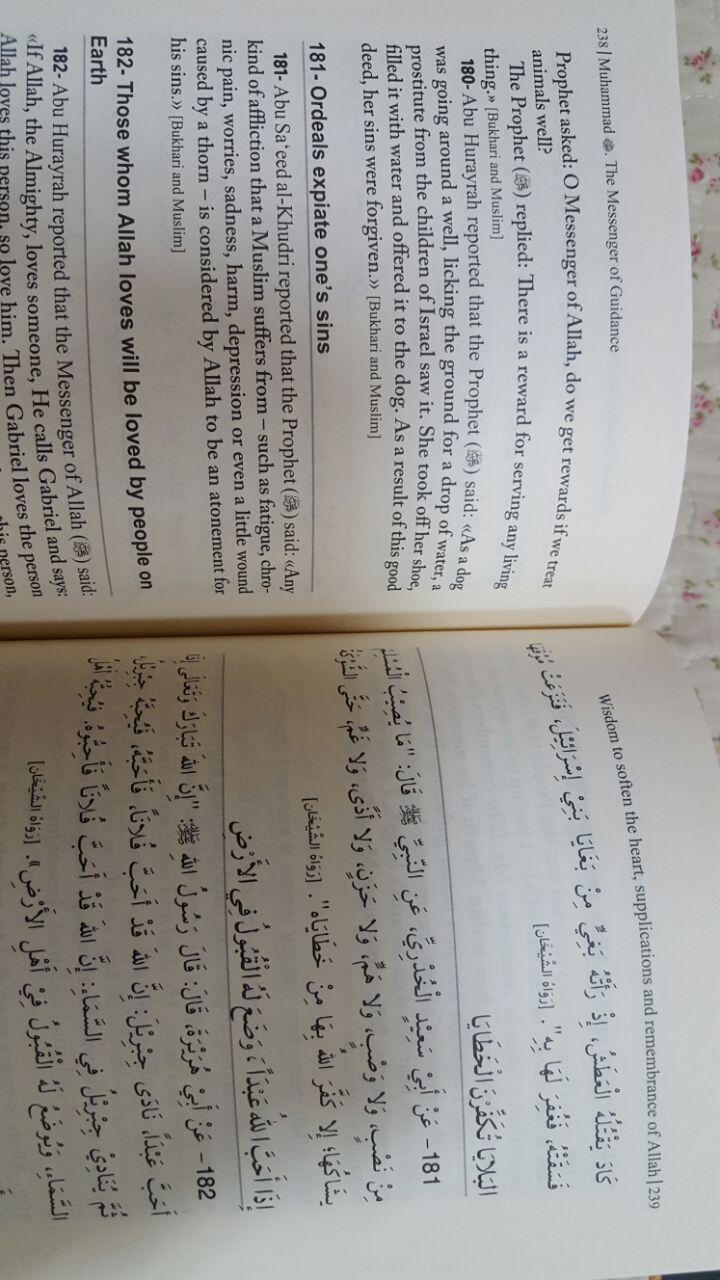 238 | Muhammad ﷺ. The Messenger of Guidance
Prophet asked: O Messenger of Allah, do we get rewards if we treat
animals well?
The Prophet (ﷺ) replied: There is a reward for serving any living
thing.» [Bukhari and Muslim]
180- Abu Hurayrah reported that the Prophet (ﷺ) said: «As a dog
was going around a well, licking the ground for a drop of water, a
prostitute from the children of Israel saw it. She took off her shoe,
filled it with water and offered it to the dog. As a result of this good
deed, her sins were forgiven.» [Bukhari and Muslim]
181- Ordeals expiate one's sins
181- Abu Sa'eed al-Khudri reported that the Prophet (ﷺ) said: «Any
kind of affliction that a Muslim suffers from – such as fatigue, chro-
nic pain, worries, sadness, harm, depression or even a little wound
caused by a thorn – is considered by Allah to be an atonement for
his sins.» [Bukhari and Muslim]
182- Those whom Allah loves will be loved by people on
Earth
182- Abu Hurayrah reported that the Messenger of Allah (ﷺ) said:
«If Allah, the Almighty, loves someone, He calls Gabriel and says:
Allah loves this person, so love him. Then Gabriel loves the person
this person,
Wisdom to soften the heart, supplications and remembrance of Allah | 239
كَادَ يَقْتُلُهُ الْعَطَشُ، إِذْ رَأَتْهُ بَغِيٌّ مِنْ بَغَايَا بَنِيْ إِسْرَائِيْلَ، فَنَزَعَتْ مُوْقَهَا
فَسَقَتْهُ، فَغُفِرَ لَهَا بِهِ". [رَوَاهُ الشَّيْخَانِ]
البَلايَا تُكَفِّرْنَ الْخَطَايَا
181– عَنْ أَبِيْ سَعِيْدٍ الْخُدْرِيِّ، عَنِ النَّبِيِّ ﷺ قَالَ: "مَا يُصِيْبُ الْمُسْلِمَ
مِنْ نَصَبٍ، وَلا وَصْبٍ، وَلا هَمٍّ، وَلا حَزَنٍ، وَلا أَذًى، وَلا غَمٍّ، حَتَّى الشَّوْكَةُ
يُشَاكُهَا؛ إِلا كَفَّرَ اللهُ بِهَا مِنْ خَطَايَاه". [رَوَاهُ الشَّيْخَانِ]
إِذَا أَحَبَّ اللهُ عَبْدَاً، وَضَعَ لَهُ الْقُبُولُ فِي الأَرْضِ
182– عَنْ أَبِيْ هُرَيْرَةَ، قَالَ: قَالَ رَسُولُ اللهِ ﷺ: "إِنَّ اللهَ تَبَارَكَ وَتَعَالَى إِذَا
أَحَبَّ عَبْدَاً، نَادَى جِبْرِيْلَ: إِنَّ اللهَ قَدْ أَحَبَّ فُلانَاً، فَأَحَبَّهُ، فَيُحِبُّهُ جِبْرِيْلُ،
ثُمَّ يُنَادِيْ جِبْرِيْلُ فِي السَّمَاءِ: إِنَّ اللهَ قَدْ أَحَبَّ فُلاناً فَأَحِبُّوهُ. فَيُحِبُّهُ أَهْلُ
السَّمَاءِ، وَيُوضَعُ لَهُ الْقُبُولُ فِيْ أَهْلِ الأَرْضِ". [رَوَاهُ الشَّيْخَانِ]